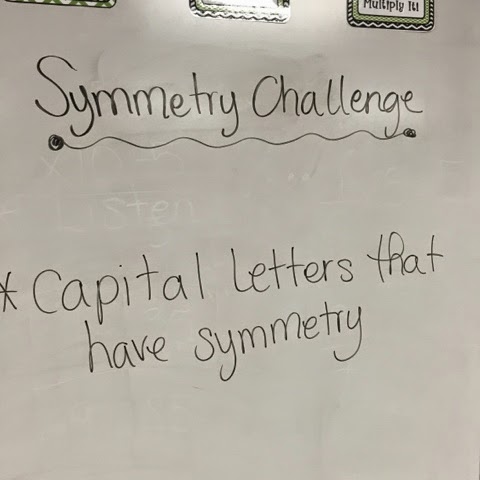 Multiply It!
Symmetry Challenge
Listen
* Capital letters that
have symmetry